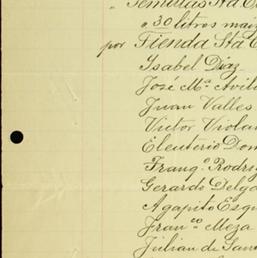 " Semillas Sta C
a 30 litros mai
por Tienda Sta C
Isabel Diaz
José Mª Avil
Juan Valles
Victor Viola
Eleuterio Dom
Franqº Rodri
Gerardo Delga
Agapito Esq
Franco Meza
Julian de San